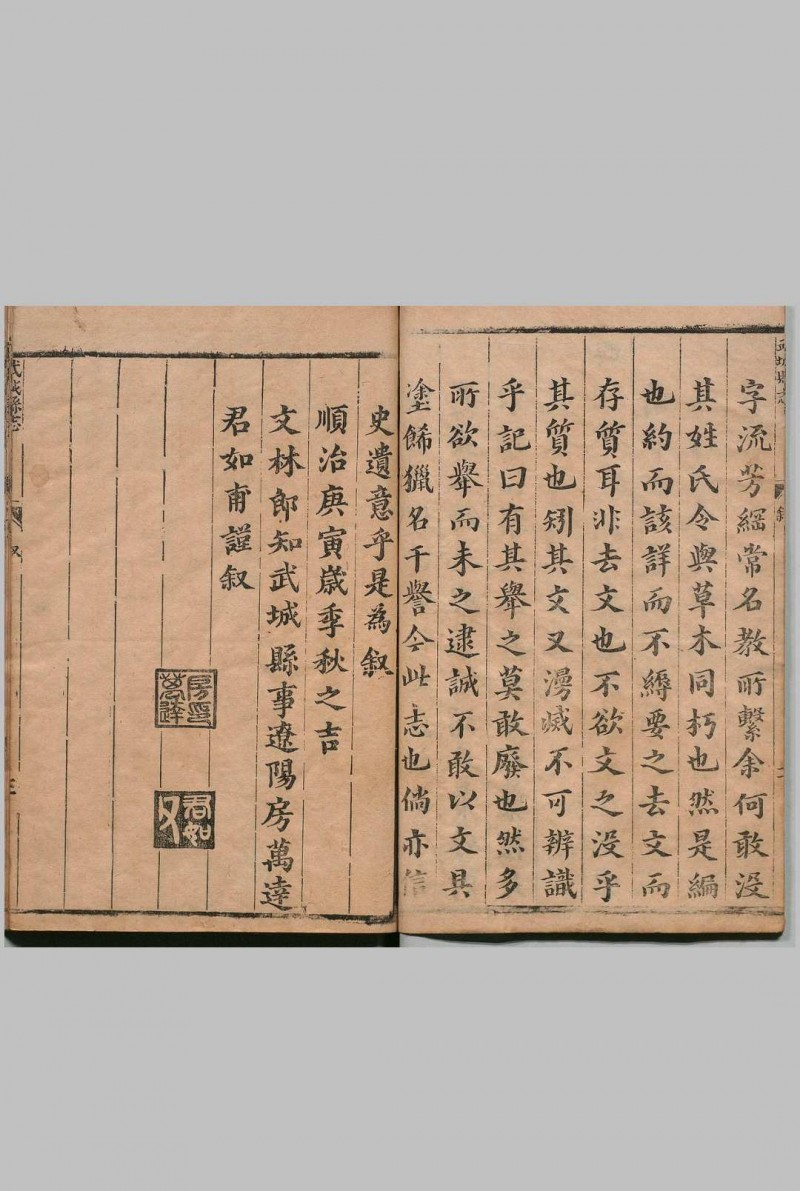 字流芳綱常名教所繫余何敢没
其姓氏令與草木同朽也然是編
也約而該詳而不縟要之去文而
存質耳非去文也不欲文之没乎
其質也矧其文又漫滅不可辨識
乎記曰有其舉之莫敢廢也然多
所欲舉而未之逮誠不敢以文具
塗餙獵名干譽今此志也倘亦信
史遺意乎是為叙
順治庚寅歲季秋之吉
文林郎知武城縣事遼陽房萬達
君如甫謹叙
房萬達印
君如父
武城縣志
叙
三